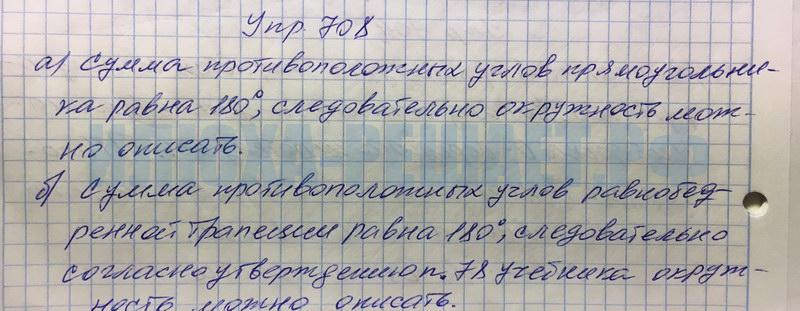 Упр 708
а) Сумма противоположных углов прямоугольни-
ка равна 180°, следовательно окружность мож-
но описать.
б) Сумма противоположных углов равнобед-
ренной трапеции равна 180°, следовательно
согласно утверждению п. 78 учебника окруж-
ность можно описать.